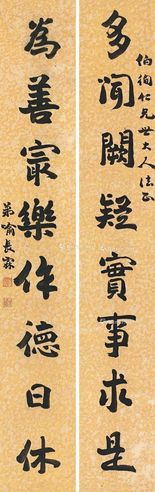 伯絢仁兄世大人法正
多聞闕疑實事求是
為善寂樂作德日休
弟喻長霖